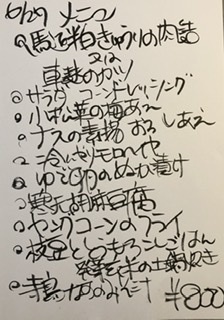 6/27 メニュー
馬れい粉きゅうりの肉詰
又は
車麩のカツ
サラダ コーンドレッシング
小松菜の梅あえ
ナスの素揚 おろしあえ
冷やしモロヘイヤ
ゆで卵のぬか漬け
黒胡麻豆腐
ヤングコーンのフライ
枝豆ととうもろこしごはん
土鍋炊き
なすのみそ汁
¥800